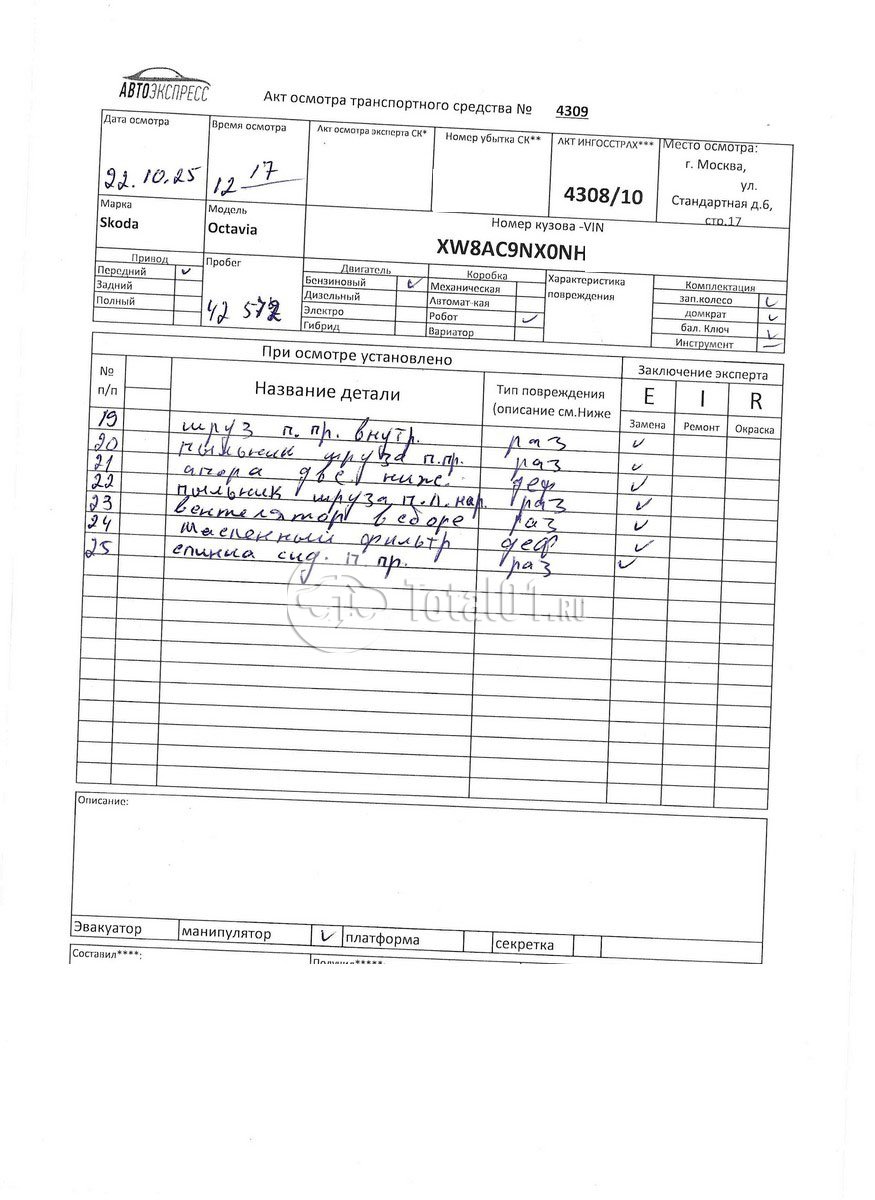 АВТОЭКСПРЕСС
Акт осмотра транспортного средства № 4309
Дата осмотра
22.10.25
Время осмотра
12 17
Акт осмотра эксперта СК*
Номер убытка СК**
АКТ ИНГОССТРАХ***
4308/10
Место осмотра:
г. Москва,
ул.
Стандартная д.6,
стр.17
Марка
Skoda
Модель
Octavia
Номер кузова -VIN
XW8AC9NX0NH
Привод
Передний ✓
Задний
Полный
Пробег
42 572
Двигатель
Бензиновый ✓
Дизельный
Электро
Гибрид
Коробка
Механическая
Автомат-кая
Робот ✓
Вариатор
Характеристика
повреждения
Комплектация
зап.колесо ✓
домкрат ✓
бал. Ключ ✓
Инструмент —
При осмотре установлено
Заключение эксперта
№
п/п
Название детали
Тип повреждения
(описание см.Ниже
E I R
Замена Ремонт Окраска
19 шруз п. пр. внутр. раз ✓
20 пыльник шруза п.пр. раз ✓
21 апора две. ниж. деф ✓
22 пыльник шруза п.л. нар. раз ✓
23 вентелятор в сборе раз ✓
24 масленный фильтр деф ✓
25 спинка сид. п пр. раз ✓
Total01.RU
Описание:
Эвакуатор манипулятор ✓ платформа секретка
Составил****:
Получил*****: